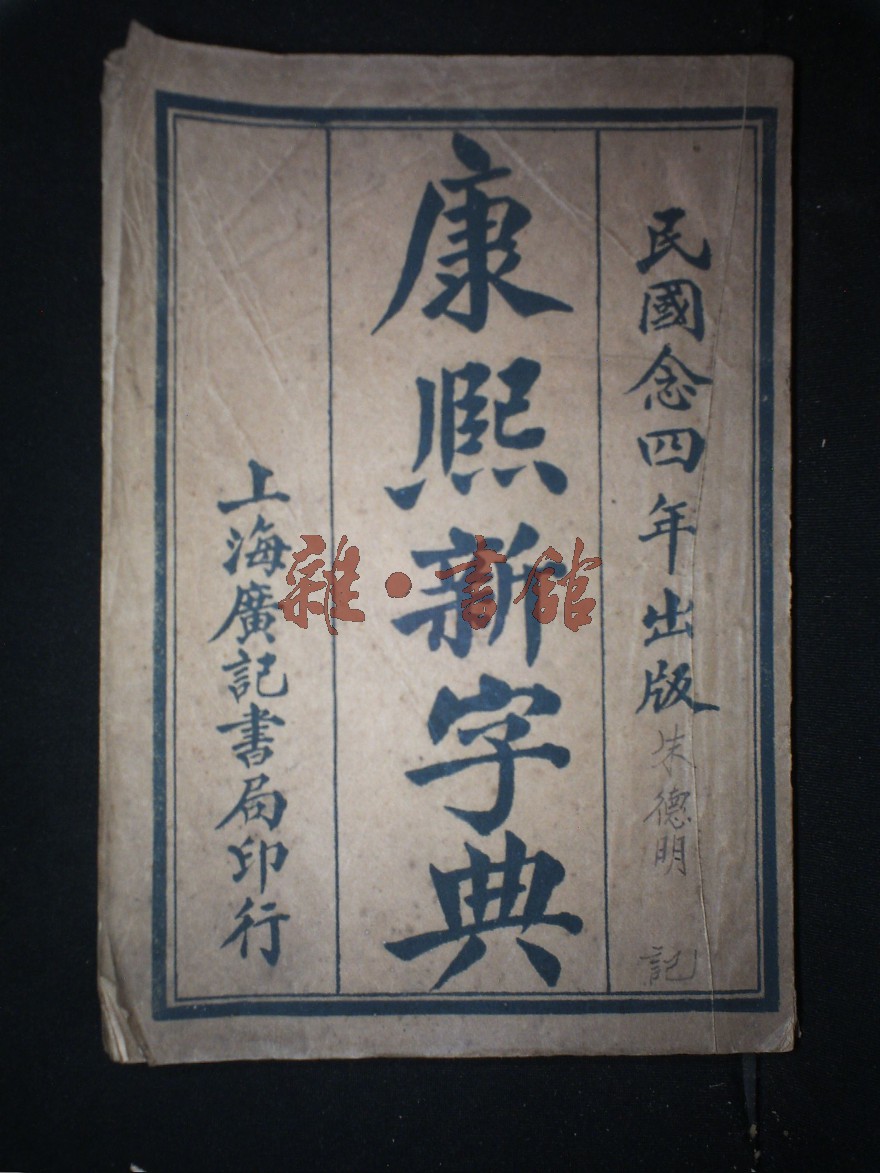 民國念四年出版
朱德明 記
康熙新字典
上海廣記書局印行
雜·書館